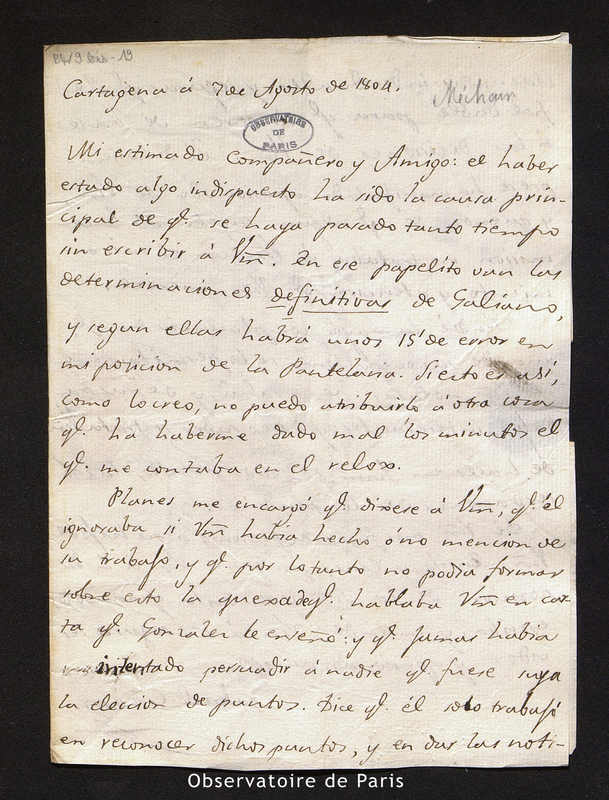 B4/9 bis - 19
Cartagena á 7 de Agosto de 1804.
Méchain
OBSERVATOIRE
DE
PARIS
Mi estimado Compañero y Amigo: el haber
estado algo indispuesto ha sido la causa prin-
cipal de qᵉ. se haya pasado tanto tiempo
sin escribir á Vm̃. En ese papelito van las
determinaciones definitivas de Galiano,
y segun ellas habrá unos 15' de error en
mi posicion de la Pantelaria. Si esto es así,
como lo creo, no puedo atribuirlo á otra cosa
qᵉ. ha haberme dado mal los minutos el
qᵉ. me contaba en el relox.
Planes me encargó qᵉ. dixese á Vm̃, qᵉ. él
ignoraba si Vm̃ habia hecho ó no mencion de
su trabajo, y qᵉ. por lo tanto no podia formar
sobre esto la quexa de qᵉ. hablaba Vm̃ en car-
ta qᵉ. Gonzalez le enseñó: y qᵉ. jamas habia
intentado persuadir á nadie qᵉ. fuese suya
la eleccion de puntos. Dice qᵉ. él solo trabajó
en reconocer dichos puntos, y en dar las noti-
Observatoire de Paris